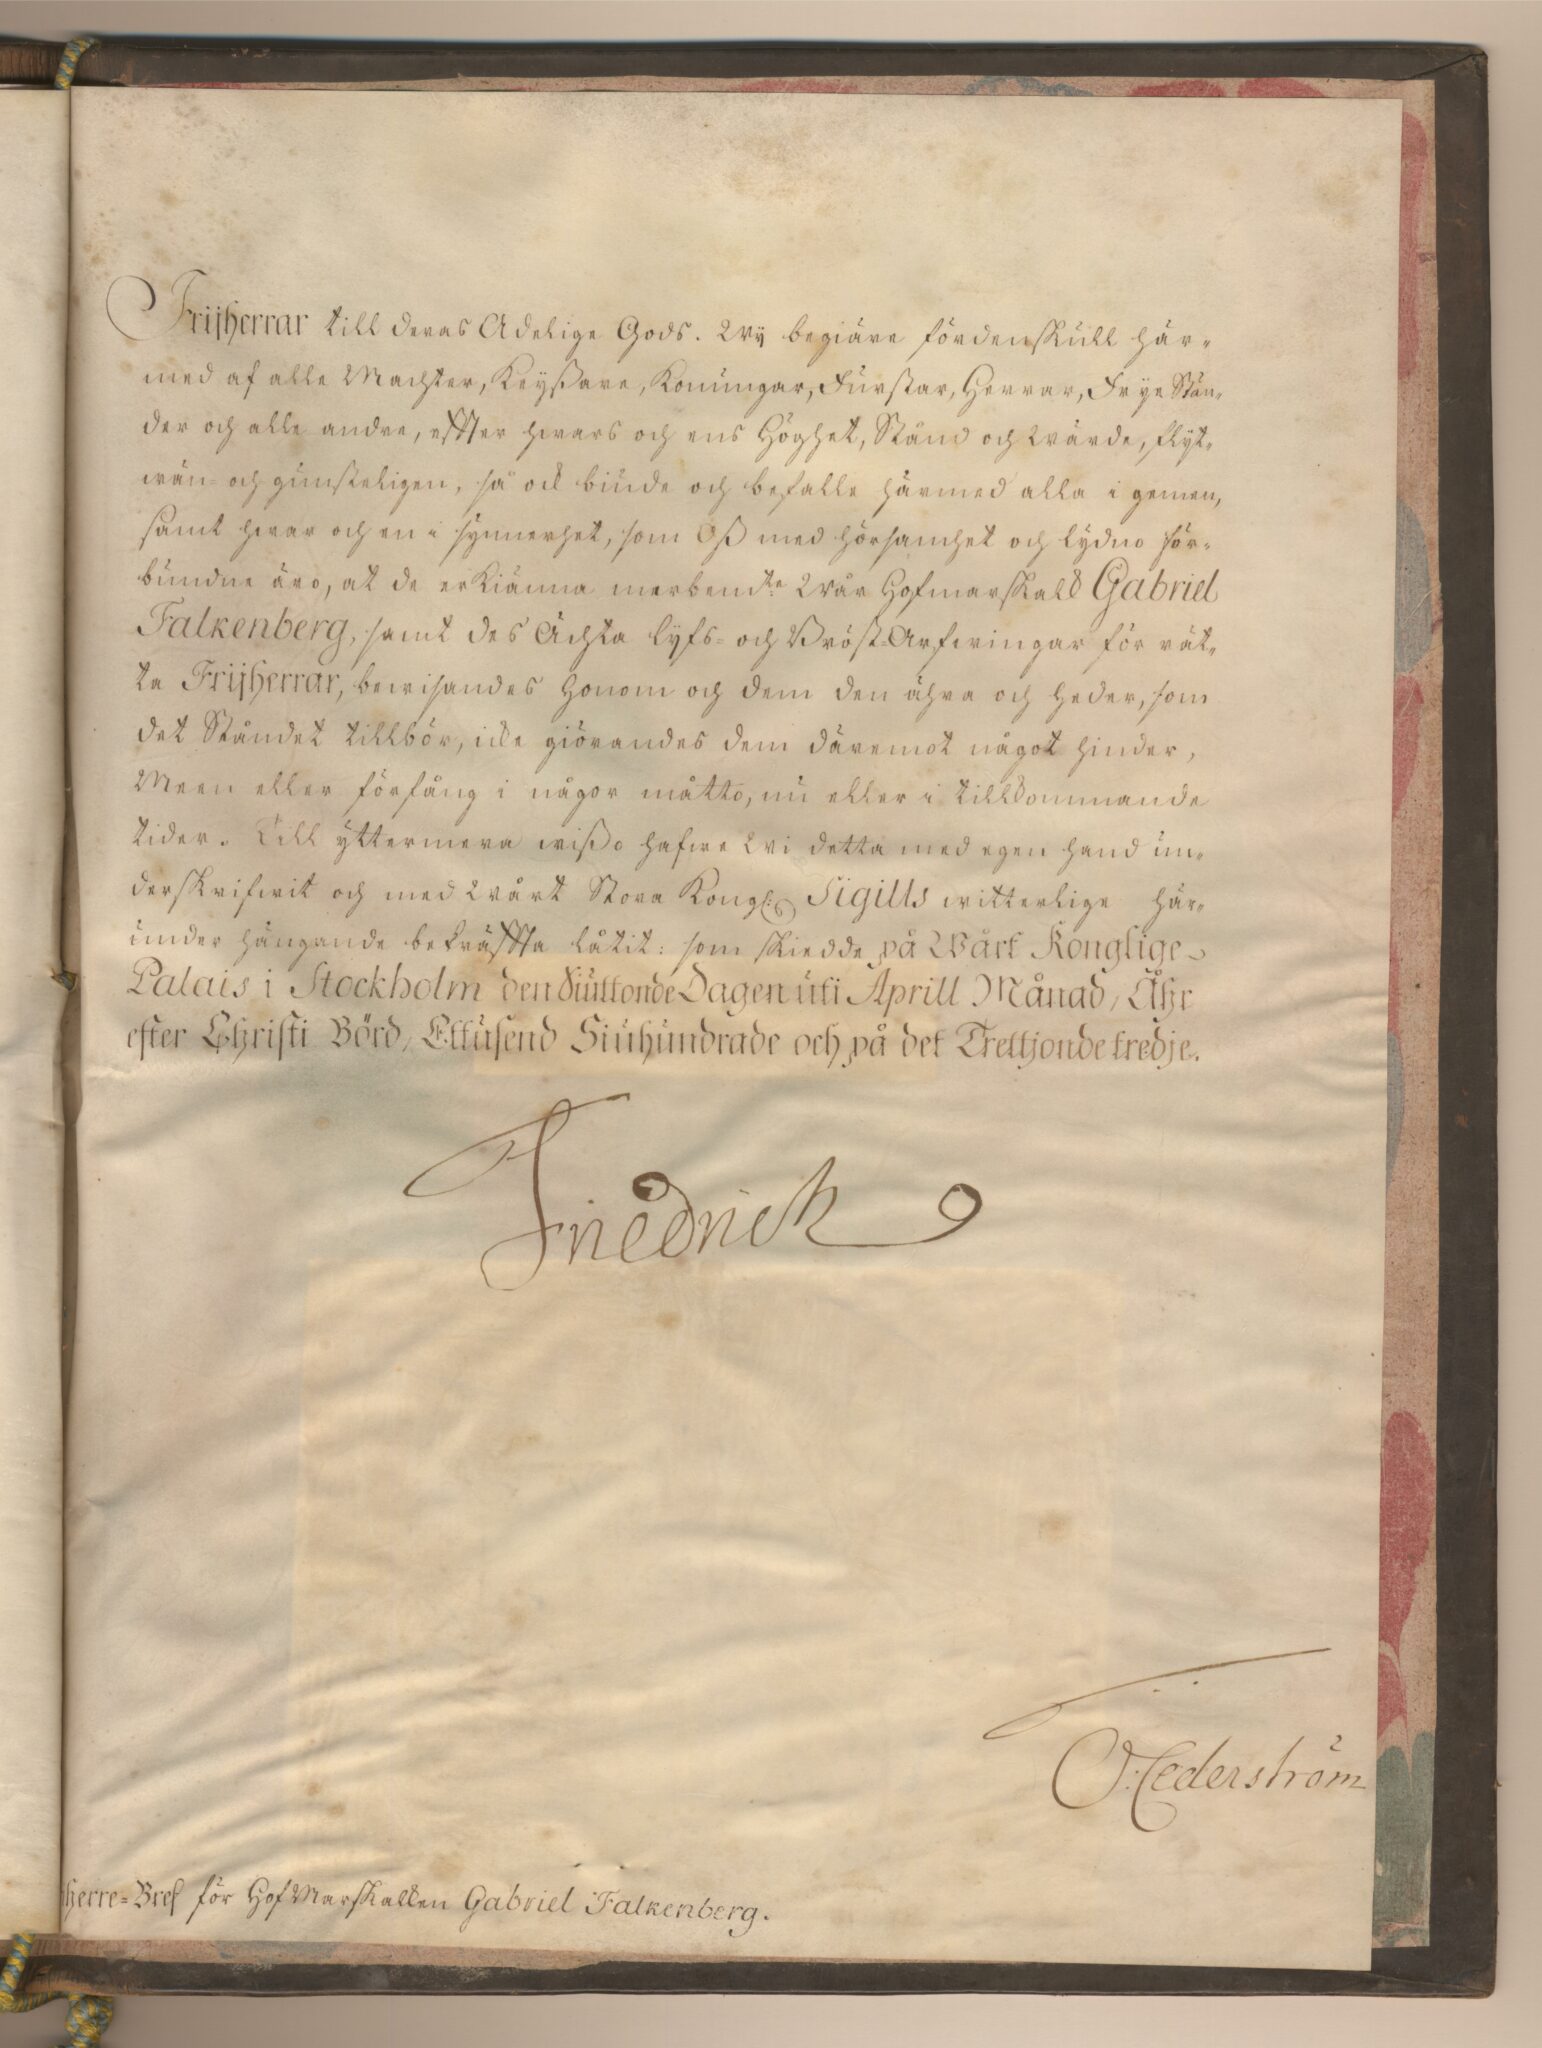 Frijherrar till deras Adelige Gods. Wy begiäre fördenskull här-
med af alle Machter, Keyßare, Konungar, Furstar, Herrar, Frye Stän-
der och alle andre, effter hwars och ens Höghet, Stånd och wärde, flyt-
wän- och gunsteligen, så ock biude och befalle härmed alla i gemen,
samt hwar och en i synnerhet, som Oß med hörsamhet och lydno för-
bundne äro, at de erkiänna merbemte wår Hofmarskalk Gabriel
Falkenberg, samt des Ächta lyfs- och Bröst-Arfwingar för rät-
ta Frijherrar, bewisandes honom och dem den ähra och heder, som
det Ståndet tillbör, icke giörandes dem däremot något hinder,
Meen eller förfång i någor måtto, nu eller i tillkommande
tider. Till yttermera wißo hafwe Wi detta med egen hand un-
derskrifwit och med Wårt Stora Kongl: Sigills witterlige här-
under hängande bekräffta låtit: som skiedde på Wårt Konglige
Palais i Stockholm den Siuttonde Dagen uti Aprill Månad, Åhr
efter Christi Börd, Ettusend Siuhundrade och på det Trettjonde tredje.
Friedrich
O: Cederström
herre-Bref för HofMarskalken Gabriel Falkenberg.